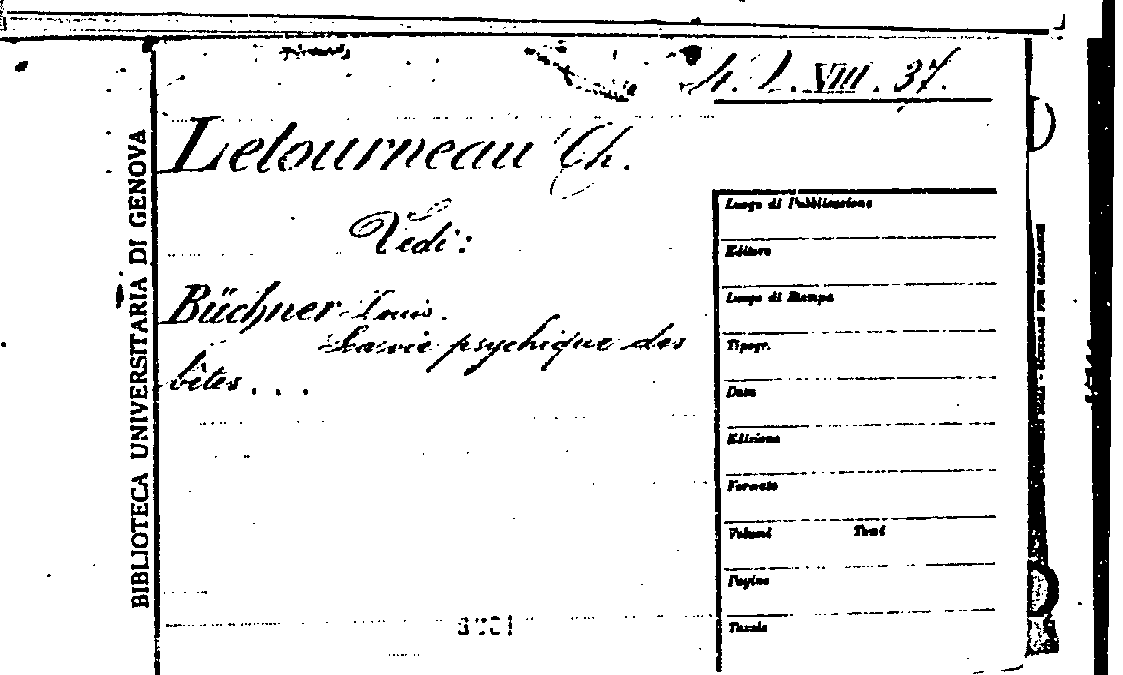 VIII. 37.
Letourneau Ch.
Vedi:
Büchner Louis.
La vie psychique des
bêtes . . .
BIBLIOTECA UNIVERSITARIA DI GENOVA
Luogo di Pubblicazione
Editore
Luogo di Stampa
Tipogr.
Data
Edizione
Formato
Volumi Tomi
Pagine
Tavole